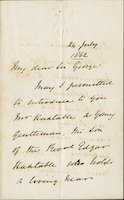 24 July
1862
My dear Sir George
May I permitted
to introduce to you
Mr Huxtable a young
Gentleman, the son
of the Revd Edgar
Huxtable who holds
a living near